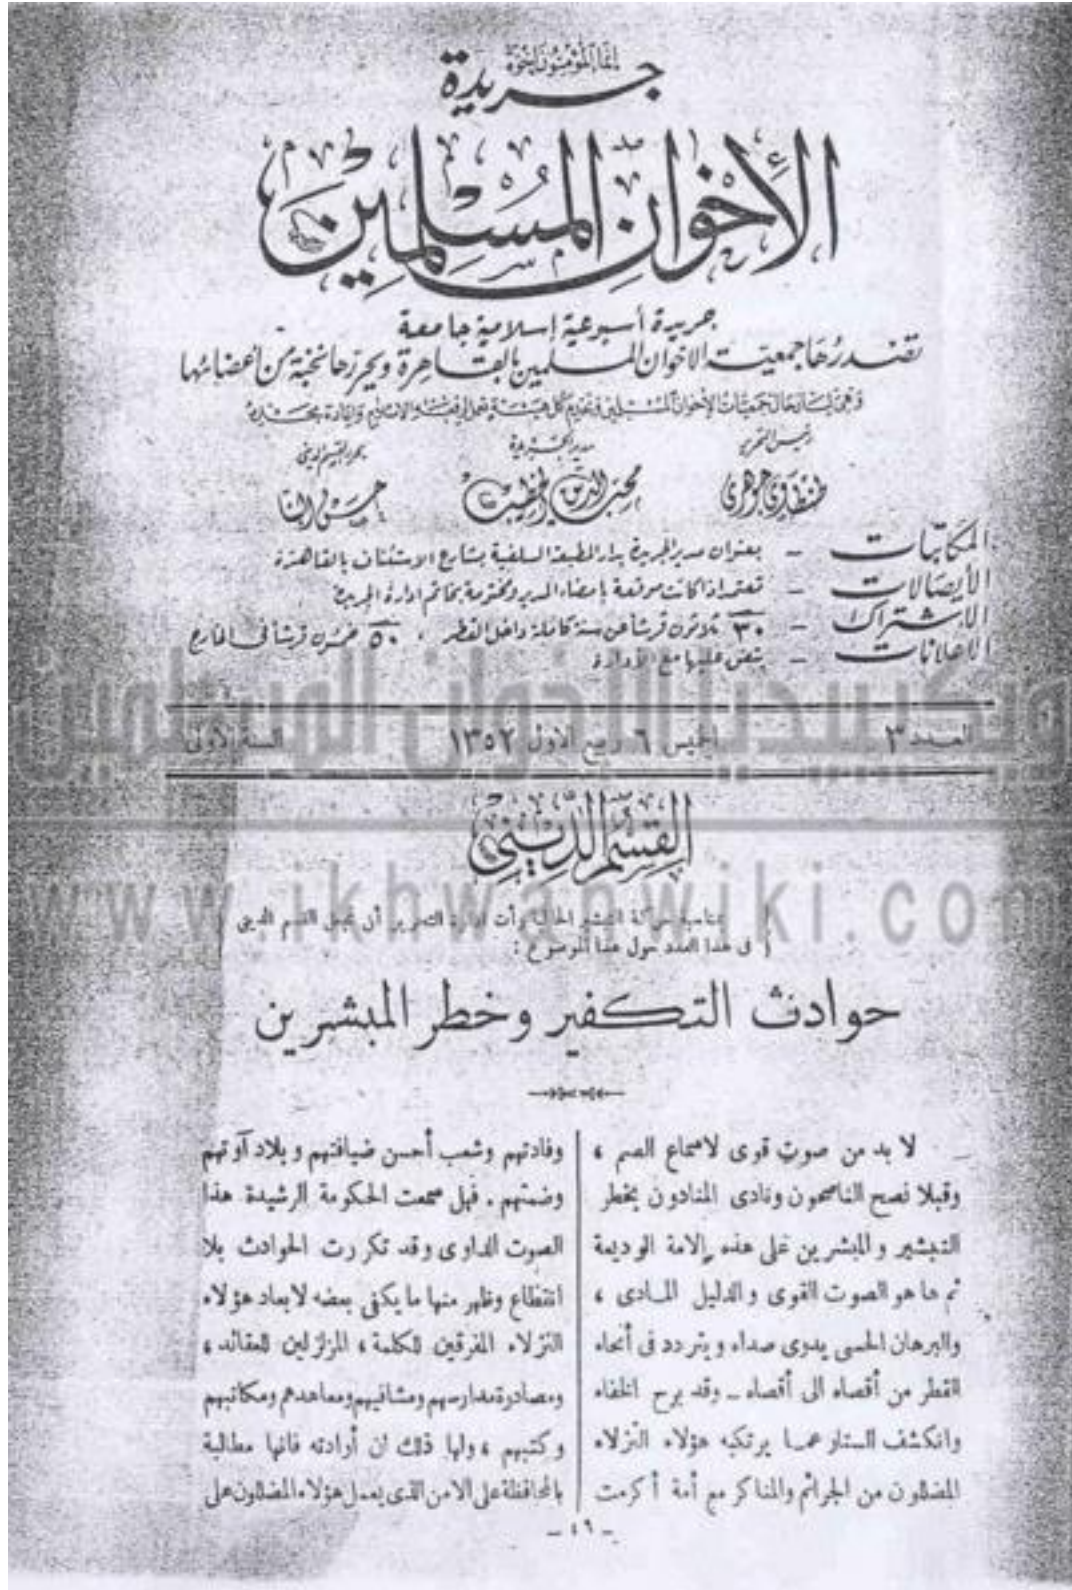 إنما المؤمنون إخوة
جريدة
الإخوان المسلمين
جريدة أسبوعية إسلامية جامعة
تصدرها جمعية الاخوان المسلمين بالقاهرة ويحررها نخبة من أعضائها
رئيس التحرير
مدير الجريدة
محرر القسم الديني
طنطاوي جوهري
محب الدين الخطيب
حسن البنا
المكاتبات – بعنوان مدير الجريدة بدار المطبعة السلفية بشارع الاستئناف بالقاهرة
الإيصالات – تعتمد اذا كانت موقعة بامضاء المدير ومختومة بخاتم ادارة الجريدة
الاشتراك – ٣٠ ثلاثون قرشا عن سنة كاملة داخل القطر ، ٥٠ خمسون قرشا في الخارج
الاعلانات – يتفق عليها مع الإدارة
ويكيبيديا الإخوان المسلمين
العدد ٣
الخميس ٦ ربيع الاول ١٣٥٢
السنة الأولى
القسم الديني
www.ikhwanwiki.com
بمناسبة حركة التبشير الحالية رأت ادارة التحرير أن تجعل القسم الديني
في هذا العدد حول هذا الموضوع :
حوادث التكفير وخطر المبشرين
لا بد من صوت قوى لاسماع الصم ،
وقبلا نصح الناصحون ونادى المنادون بخطر
التبشير والمبشرين على هذه الامة الوديعة
ثم ها هو الصوت القوى والدليل المادى ،
والبرهان الحسى يدوى صداه ويتردد فى أنحاء
القطر من أقصاه الى أقصاه – وقد برح الخفاء
وانكشف الستار عما يرتكبه هؤلاء النزلاء
المضللون من الجرائم والمناكر مع أمة أكرمت
وفادتهم وشعب أحسن ضيافتهم وبلاد آوتهم
وضمتهم . فهل سمعت الحكومة الرشيدة هذا
الصوت الداوى وقد تكررت الحوادث بلا
انقطاع وظهر منها ما يكفى بعضه لابعاد هؤلاء
النزلاء المفرقين للكلمة ، المزلزلين للعقائد ،
ومصادرة مدارسهم ومشافيهم ومعاهدهم ومكاتبهم
وكتبهم ، ولها ذلك ان أرادته فانها مطالبة
بالمحافظة على الامن الذى يعمل هؤلاء المضللون على
– ٤٩ –